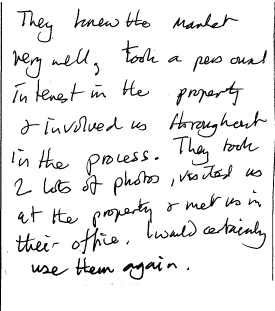 They knew the market
very well, took a personal
interest in the property
& involved us throughout
in the process. They took
2 lots of photos, visited us
at the property & met us in
their office. I would certainly
use them again.